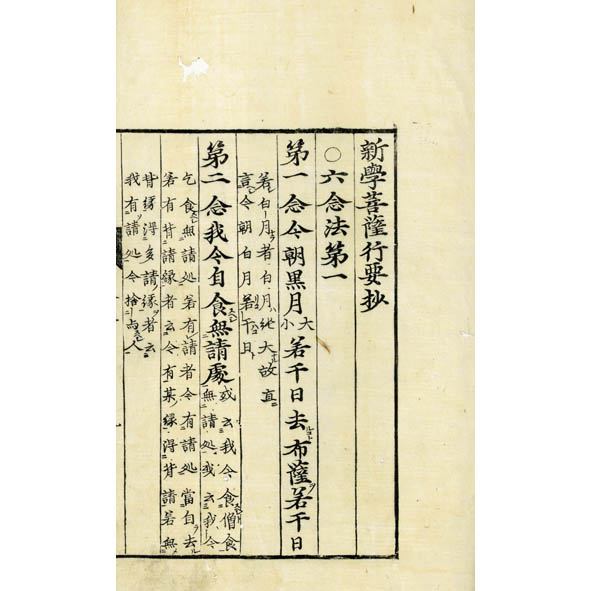 新學菩薩行要抄
○六念法第一
第一念今朝黒月大小若干日去布薩若干日
若白月者白月ハ純大故直ニ
言今朝白月若干日
第二念我今自食無請處或云我今食僧食
無請処或云我今
乞食無請処若有請者云今有請処當自去
若有背請縁者云今有某縁得背請若無
背縁得多請縁者云
我有請処今捨与人